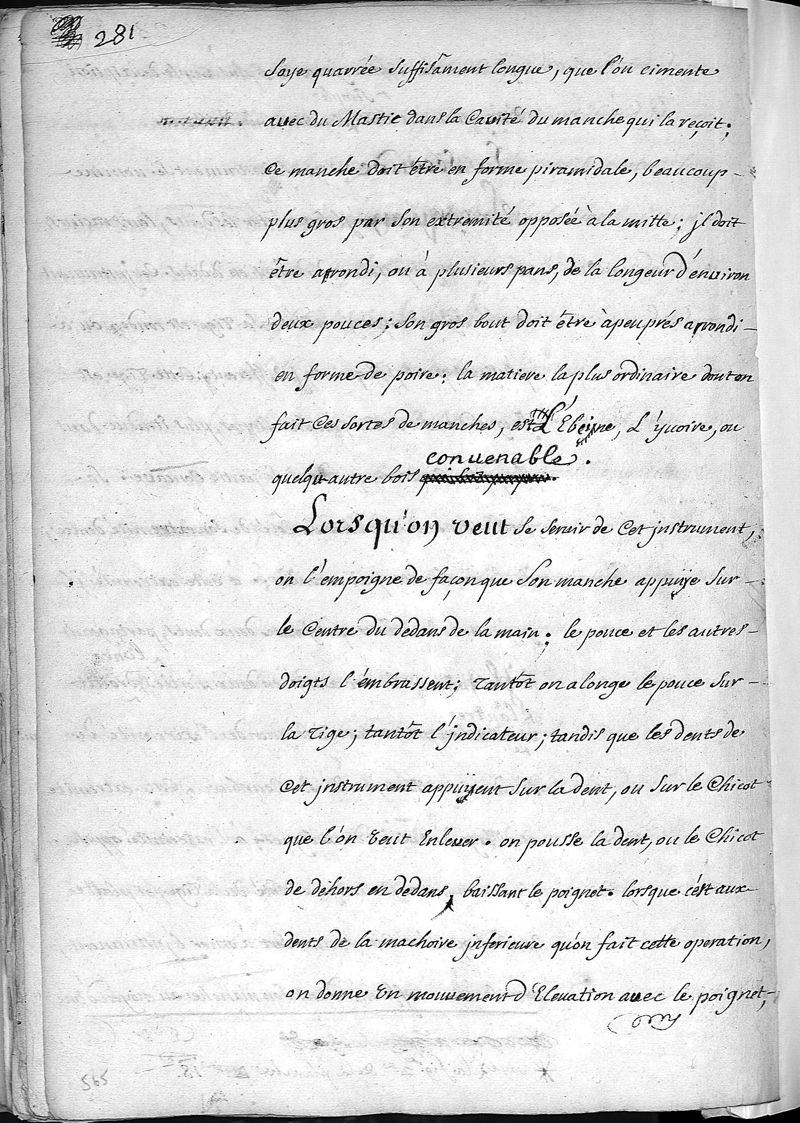 281
soye quarrée suffisãment longue, que l'on cimente
avec du Mastic dans la Cavité du manche qui la reçoit;
Ce manche doit être en forme piramidale, beaucoup-
plus gros par son extremité opposée à la mitte; jl doit
être arondi, ou à plusieurs pans, de la longeur d'environ
deux pouces; son gros bout doit être àpeuprés arondi-
en forme de poire: la matiere la plus ordinaire dont on
fait ces sortes de manches, est L'Ebeine, L'yvoire, ou
convenable.
quelqu'autre bois
Lorsqu'on veut se servir de Cet jnstrument,
on l'empoigne de façon que son manche appuÿe sur-
le Centre du dedans de la main; le pouce et les autres-
doigts l'embrassent; tantôt on alonge le pouce sur-
la tige; tantôt l'jndicateur; tandis que les dents de
Cet jnstrument appuÿent sur la dent, ou sur le Chicot
que l'on veut Enlever. on pousse la dent, ou le Chicot
de déhors en dedans, baissant le poignet. lorsque c'est aux-
dents de la machoire jnferieure qu'on fait cette operation,
on donne un mouvement d'Elevation avec le poignet;
565